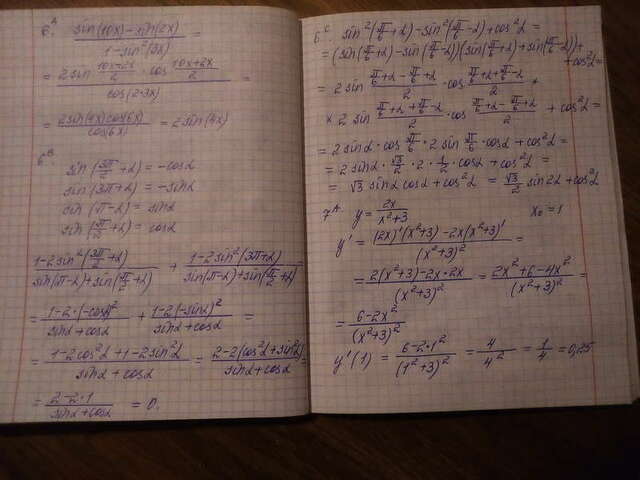 6^A. (sin(10x) - sin(2x))/(1 - sin²(3x)) =
= (2 sin (10x-2x)/2 · cos (10x+2x)/2)/(cos(2·3x)) =
= (2 sin(4x) cos(6x))/(cos(6x)) = 2 sin(4x)
6^B. sin(3π/2 + α) = -cosα
sin(3π + α) = -sinα
sin(π - α) = sinα
sin(π/2 + α) = cosα
(1 - 2 sin²(3π/2 + α))/(sin(π-α) + sin(π/2 + α)) + (1 - 2 sin²(3π + α))/(sin(π-α) + sin(π/2 + α)) =
= (1 - 2·(-cosα)²)/(sinα + cosα) + (1 - 2(-sinα)²)/(sinα + cosα) =
= (1 - 2cos²α + 1 - 2sin²α)/(sinα + cosα) = (2 - 2(cos²α + sin²α))/(sinα + cosα) =
= (2 - 2·1)/(sinα + cosα) = 0.
6^C. sin²(π/6 + α) - sin²(π/6 - α) + cos²α =
= (sin(π/6 + α) - sin(π/6 - α))(sin(π/6 + α) + sin(π/6 - α)) +
+ cos²α =
= 2 sin (π/6 + α - π/6 + α)/2 · cos (π/6 + α + π/6 - α)/2 ×
× 2 sin (π/6 + α + π/6 - α)/2 · cos (π/6 + α - π/6 + α)/2 + cos²α =
= 2 sinα · cos π/6 · 2 sin π/6 · cosα + cos²α =
= 2 sinα · √3/2 · 2 · 1/2 · cosα + cos²α =
= √3 sinα cosα + cos²α = √3/2 sin2α + cos²α
7^A. y = 2x/(x²+3) x₀ = 1
y' = ((2x)'(x²+3) - 2x(x²+3)')/(x²+3)² =
= (2(x²+3) - 2x·2x)/(x²+3)² = (2x² + 6 - 4x²)/(x²+3)² =
= (6 - 2x²)/(x²+3)²
y'(1) = (6 - 2·1²)/(1²+3)² = 4/4² = 1/4 = 0,25